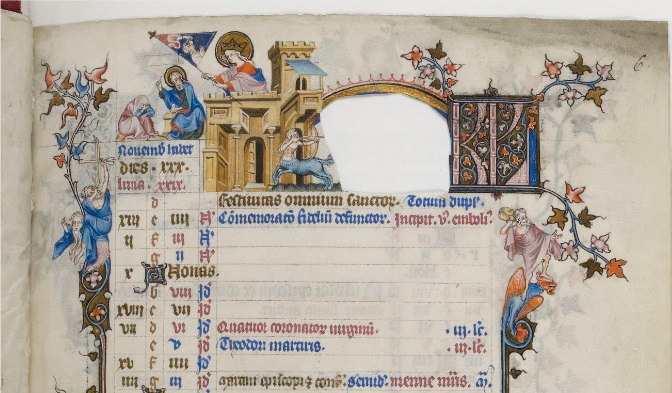 6.
Novemb' habet
dies . xxx.
luna . xxix.
d festiuitas omnium sanctor. Totum dupl'.
xiii e iiii N Comemoratō fideliū defunctor. Incipit
ii f iii N
g ii N
x A Nonas.
b viii Id
xviii c vii Id
vii d vi Id Quatuor coronator martirum. . iii . lc.
e v Id Theodori martiris. . iii . lc.
xv f iiii Id
iiii g iii Id Martini episcopi et conf.